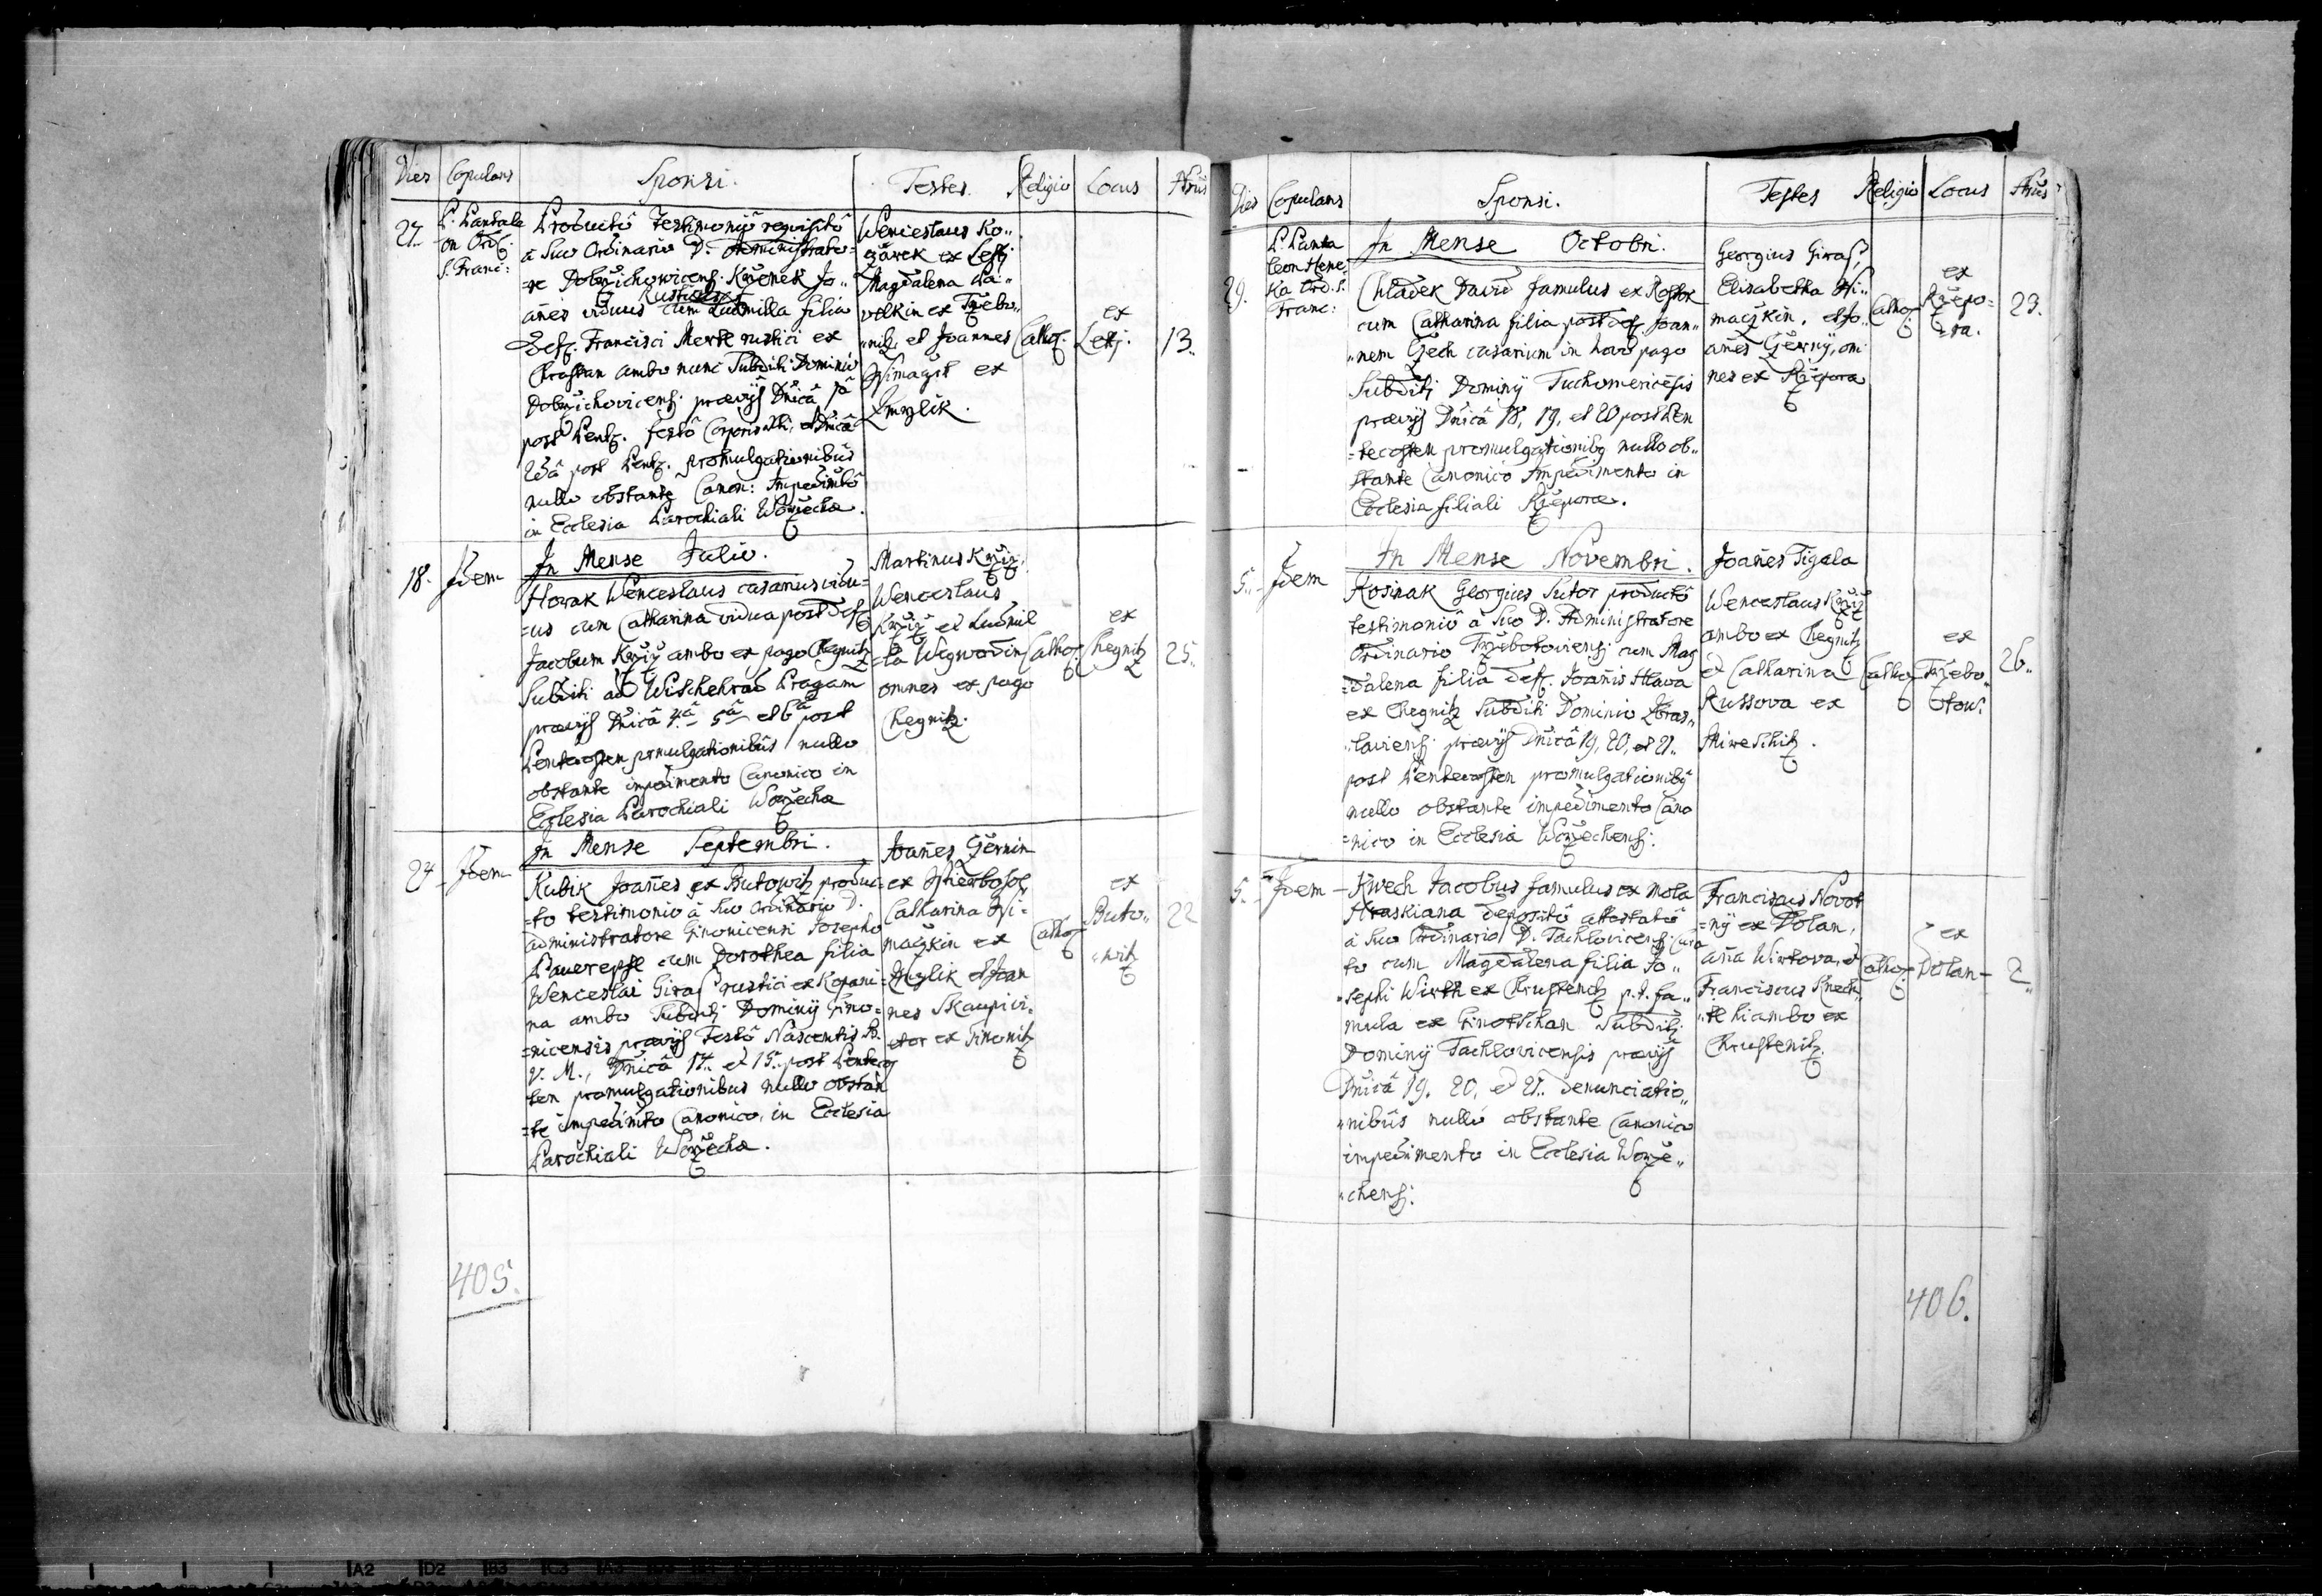 Dies Copulans Sponsi. Testes. Religio Locus Nrus
27. P. Pantale
on Ord.
S. Franc:
Producto Testimonio requisito
à Suo Ordinario D. Administrato=
=re Dobrzichowicens. Krzenek Jo„
añes viduus cum Ludmilla filia
Deff. Francisci rustici ex
ambo nunc Subditi Dominio
Dobrzichovicens. prævijs Dñicâ
post Pent. festô Corporis et Dñicâ
2dâ post Pent. promulgationibus
nullo obstante Canon: Impedimto
in Ecclesia Parochiali Worzecha.
Wenceslaus Ko„
ex
Magdalena
ex Trzebo„
„nitz, et Joannes
ex
Zmrzlik.
Cathol.
ex
13.
In Mense Julio.
18. Idem
Horak Wenceslaus casarius vidu=
=us cum Catharina vidua post deff.
Jacobum Krziž ambo ex pago Chegnitz
Subditi ad Wischehrad Pragam
prævijs Dñicâ 4.â 5â et 6â post
Pentecosten promulgationibus nullo
obstante impedimento Canonico in
Ecclesia Parochiali Worzecha
Martinus Krziž,
Wenceslaus
Krziž et Ludmil
=la
omnes ex pago
Chegnitz.
Cathol.
ex
Chegnitz
25.
In Mense Septembri.
24. Idem
Kubik Joañes ex Butowitz produc=
=to testimonio à Suo Ordinario D.
administratore Ginonicensi Josepho
cum Dorothea filia
Wenceslai Giras rustici ex Kopani=
na ambo Subditi Dominij Gino=
=nicensis prævijs Festô Nascentis B.
V. M., Dñicâ 14. et 15. post Pentecos
ten promulgationibus nullo obstan
=te impedimto Canonico, in Ecclesia
Parochiali Worzecha.
Joañes Gernin
ex
Catharina
ex
Zmrzlik et Joan
nes Skaupi vi=
etor ex Ginonitz
Cathol.
ex
Buto„
„witz
22
405.
Dies Copulans Sponsi. Testes Religio Locus Nrus
In Mense Octobri.
29.
P. Panta
leon Hene
ka Ord. S.
Franc:
Chladek David famulus ex
cum Catharina filia post deff. Joan„
„nem Czech casarium in hoc pago
Subditi Dominij Tuchomericesis
prævijs Dñicâ 18, 19, et 20 post Pen
=tecosten promulgationibq nullo ob„
stante Canonico Impedimento in
Ecclesia filiali Rzepora.
Georgius Giras,
Elisabetha
et Jo„
añes Czerny, om
nes ex Rzepora
Cathol.
ex
Rzepo=
=ra.
23.
In Mense Novembri.
5. Idem
Kosinak Georgius Sutor productô
testimoniô à Suo D. Administratore
Ordinario Trzebotoviens. cum Mag
=dalena filia deff. Joañis Hlava
ex Chegnitz Subditi Dominio Zbras„
„laviens. prævijs Dñicâ 19, 20, et 21.
post Pentecosten promulgationibq
nullo obstante impedimento Cano
=nico in Ecclesia Worzechens.
Joañes Tigala
Wenceslaus Krziž
ambo ex Chegnitz
et Catharina
Kussova ex
Cathol.
ex
Trzebo„
tow:
26.
5. Idem
Kwech Jacobus famulus ex mola
Hraskiana depositô attestatô
à Suo Ordinario D. Tachlovicens. cura
to cum Magdalena filia Jo„
„sephi Wirth ex Chrustenitz p. t. fa„
mula ex Ginotschan Subditi
Dominij Tachlovicensis prævijs
Dñicâ 19. 20, et 21. denunciatio„
„nibus nullô obstante Canonico
impedimento in Ecclesia Worze„
„chens.
Franciscus Novot
=ny ex Dolan,
aña Wirtova, et
Franciscus Knech
„tl hi ambo ex
Chrustenitz.
Cathol.
ex
Dolan
2.
406.